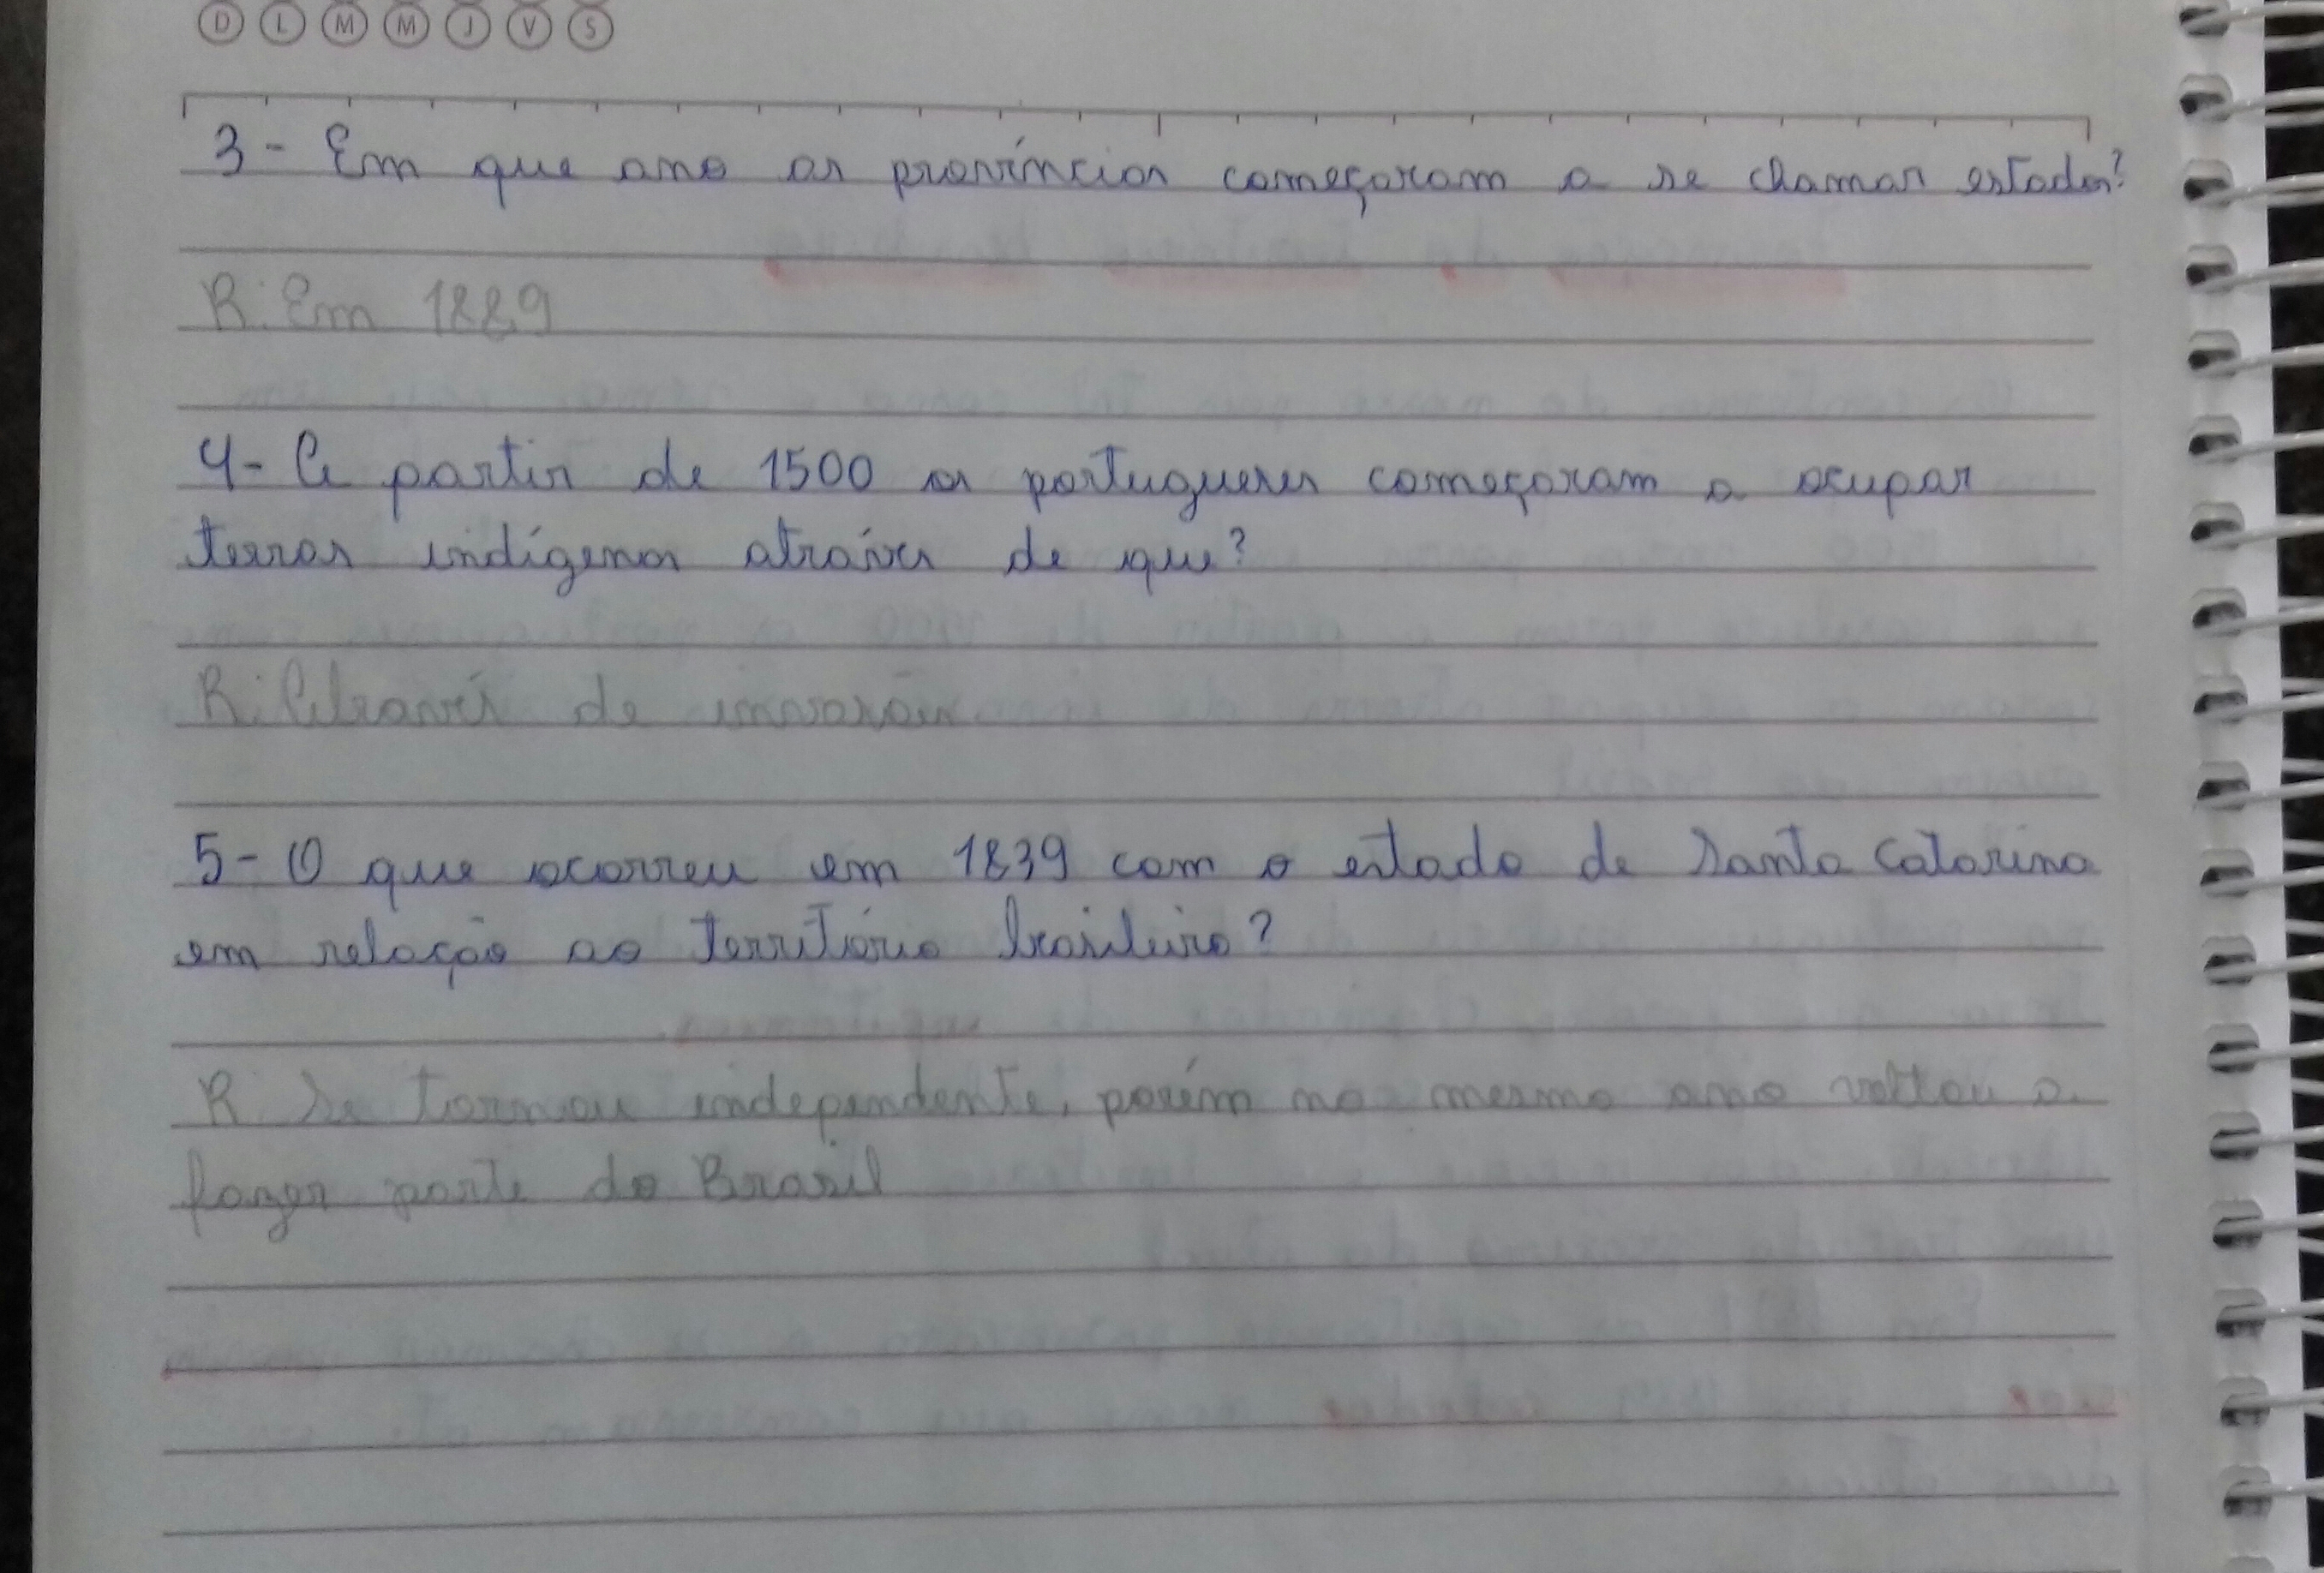 D L M M J V S
3- Em que ano as províncias começaram a se chamar estados?
R: Em 1889
4- A partir de 1500 os portugueses começaram a ocupar
terras indígenas através de que?
R: Através de invasões
5- O que ocorreu em 1839 com o estado de Santa Catarina
em relação ao território brasileiro?
R: Se tornou independente, porém no mesmo ano voltou a
fazer parte do Brasil